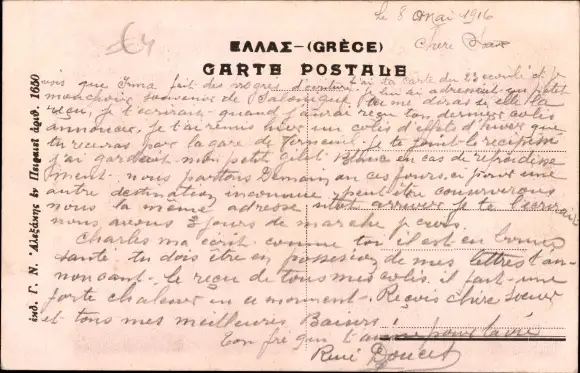 le 8 Mai 1916
Chère
ΕΛΛΑΣ-(GRÈCE)
CARTE POSTALE
vois que Irma fait des progrès d'écriture. j'ai ta carte du 23 écoulé et je
lui ai adressé un petit
mouchoir souvenir de Salonique. tu me diras si elle l'a
reçu, je t'écrirai quand j'aurai reçu ton dernier colis
annoncé, je t'ai remis hier un colis d'effets d'hiver que
tu recevras par la gare de je te joint le récépissé
j'ai gardé mon petit gilet Blanc en cas de refroidisse
ment. nous partons Demain ou ces jours ci pour une
autre destination inconnue, peut être conserverons
nous la même adresse sitôt arriver je te l'écrirai
nous avons 3 jours de marche je crois.
Charles m'a écrit comme toi il est en bonne
santé. tu dois être en possession de mes lettres t'an-
nonçant le reçu de tous mes colis. il fait une
forte chaleur en ce moment. Reçois chère soeur
et tous mes meilleures Baisers !
Ton frère qui t'aime pour la vie
René Doucet
ἐκδ. Γ. Ν. Ἀλεξάκης ἐν Πειραιεῖ ἀριθ. 1650